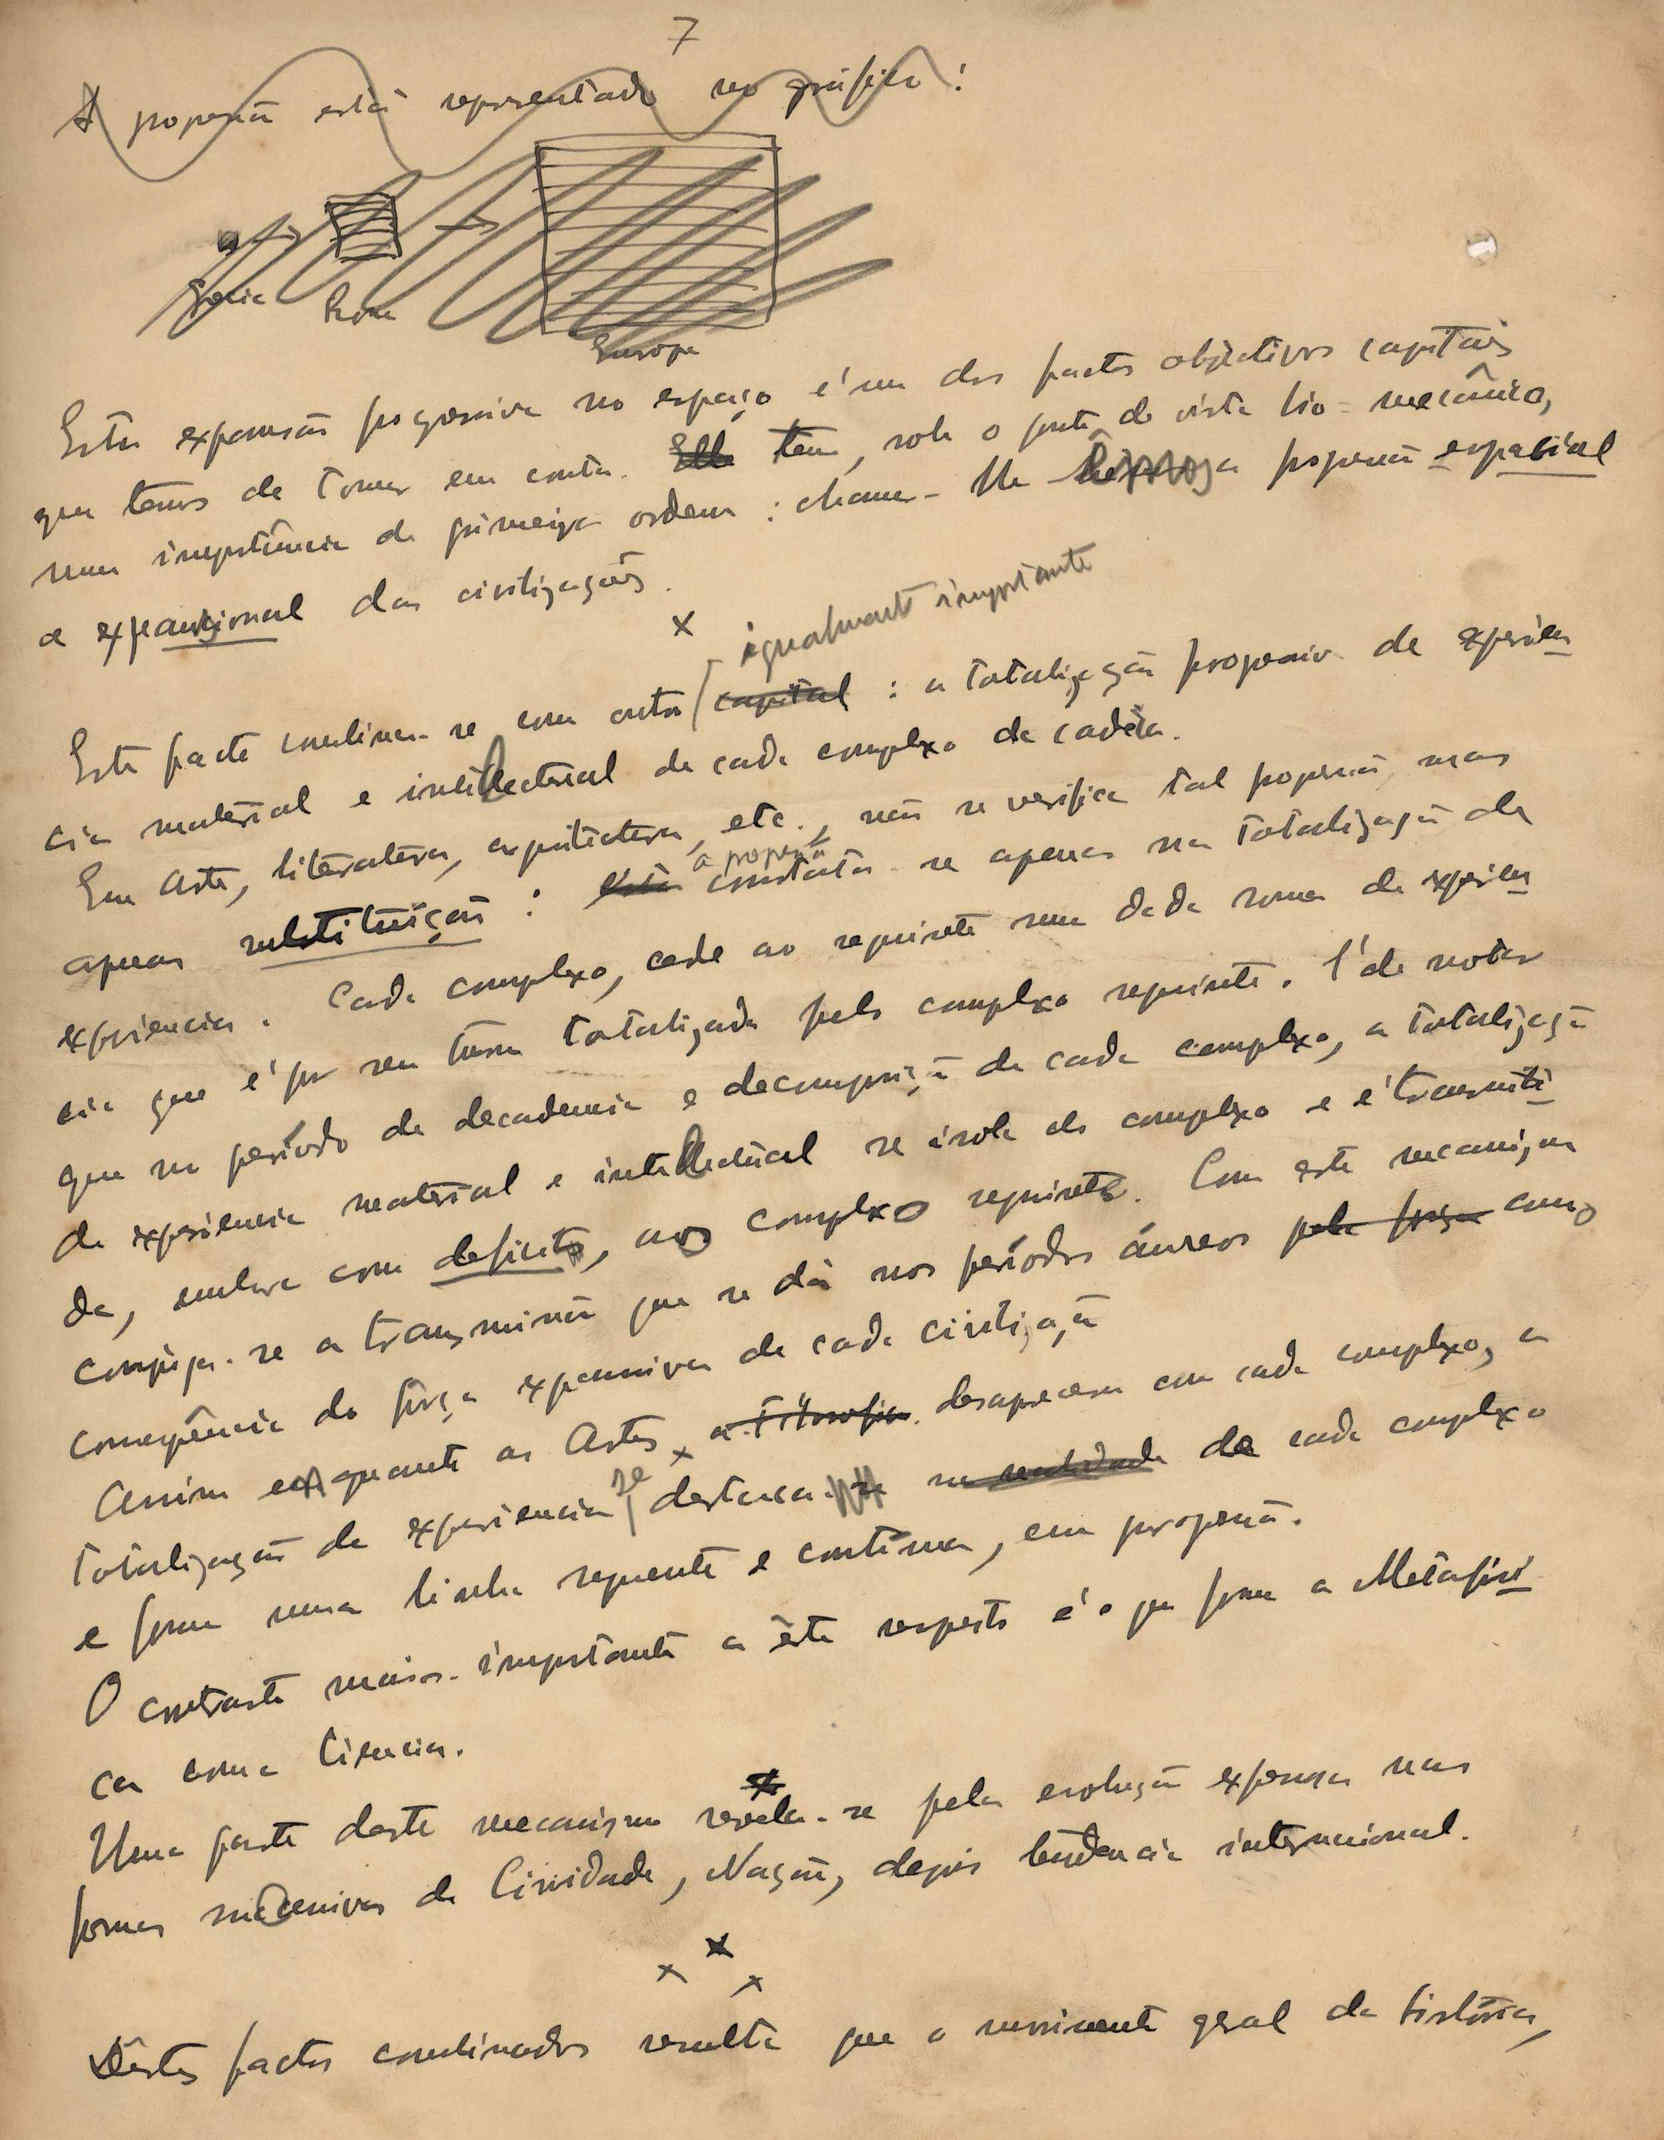 7
A progressão está representada no gráfico:
Grecia Roma
Europa
Esta expansão progressiva no espaço é um dos factos objectivos capitais
que temos de tomar em conta. Ella tem, sob o ponto de vista bio-mecânico,
uma importância de primeira ordem: chama-lhe-êmos a progressão espacial
e expansional das civilizações.
x
igualmente importante
Este facto combina-se com outro capital: a totalização progressiva de experiên
cia material e intellectual de cada complexo da cadeia.
Em Arte, literatura, arquitectura, etc., não se verifica tal progressão, mas
a progressão
apenas substituição: esta constata-se apenas na totalização da
experiencia. Cada complexo, cede ao seguinte uma dada soma de experien
cia que é por seu turno totalizada pelo complexo seguinte. É de notar
que no período de decadencia e decomposição de cada complexo, a totalização
da experiencia material e intellectual se isola do complexo e é transmiti
da, embora com deficits, ao complexo seguinte. Com este mecanismo
conjuga-se a transmissão que se dá nos períodos áureos pela força como
consequência da força expansiva de cada civilização
Assim enquanto as Artes, a Filosofia desaparecem com cada complexo, a
totalização da experiencia se destaca-se na realidade de cada complexo
e forma uma linha seguente e contínua, em progressão.
O contraste mais importante a êste respeito é o que forma a Metafísi
ca com a Ciencia.
Uma parte deste mecanismo revela-se pela evolução expressa nas
formas sucessivas de Cividade, Nação, depois tendencia internacional.
x x x
Dêstes factos combinados resulta que o movimento geral da história,